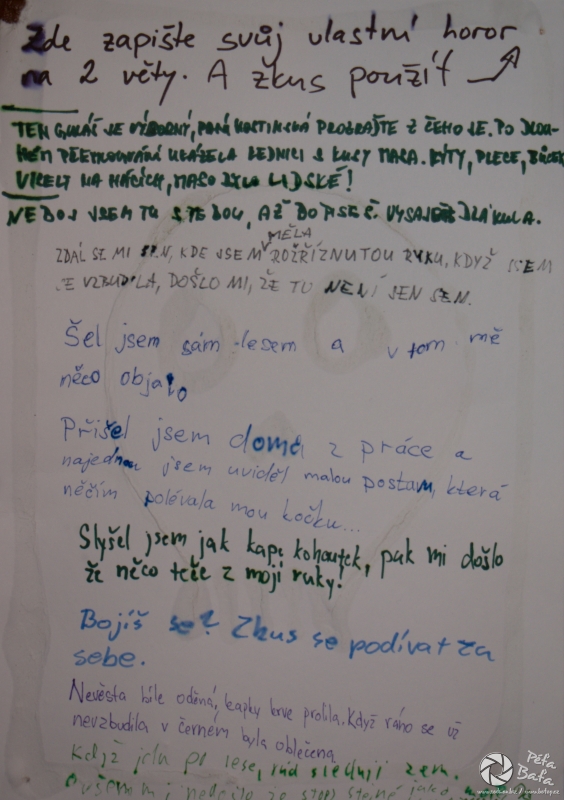 Zde zapište svůj vlastní horor
na 2 věty. A zkus použít
TEN GULÁŠ JE VÝBORNÝ, PANÍ HOSTINSKÁ PROZRAĎTE Z ČEHO JE. PO DLOU-
HÉM PŘEMLOUVÁNÍ UKÁZALA LEDNICI S KUSY MASA. KÝTY, PLECE, BŮČEK
VISELY NA HÁCÍCH, MASO BYLO LIDSKÉ!
NEBOJ JSEM TU S TEBOU, AŽ DO VYSAJE DRÁKULA.
ZDÁL SE MI SEN, KDE JSEM MĚLA ROZŘÍZNUTOU RUKU, KDYŽ JSEM
SE VZBUDILA, DOŠLO MI, ŽE TO NENÍ JEN SEN.
Šel jsem sám lesem a v tom mě
něco objalo
Přišel jsem domů z práce a
najednou jsem uviděl malou postavu, která
něčím polévala mou kočku...
Slyšel jsem jak kape kohoutek, pak mi došlo
že něco teče z moji ruky.
Bojíš se? Zkus se podívat za
sebe.
Nevěsta bíle oděná, kapky krve prolila. Když ráno se už
nevzbudila v černém byla oblečena
Když jdu po lese, rád sleduji zem.
stop stejné jako
Péťa
Baťa